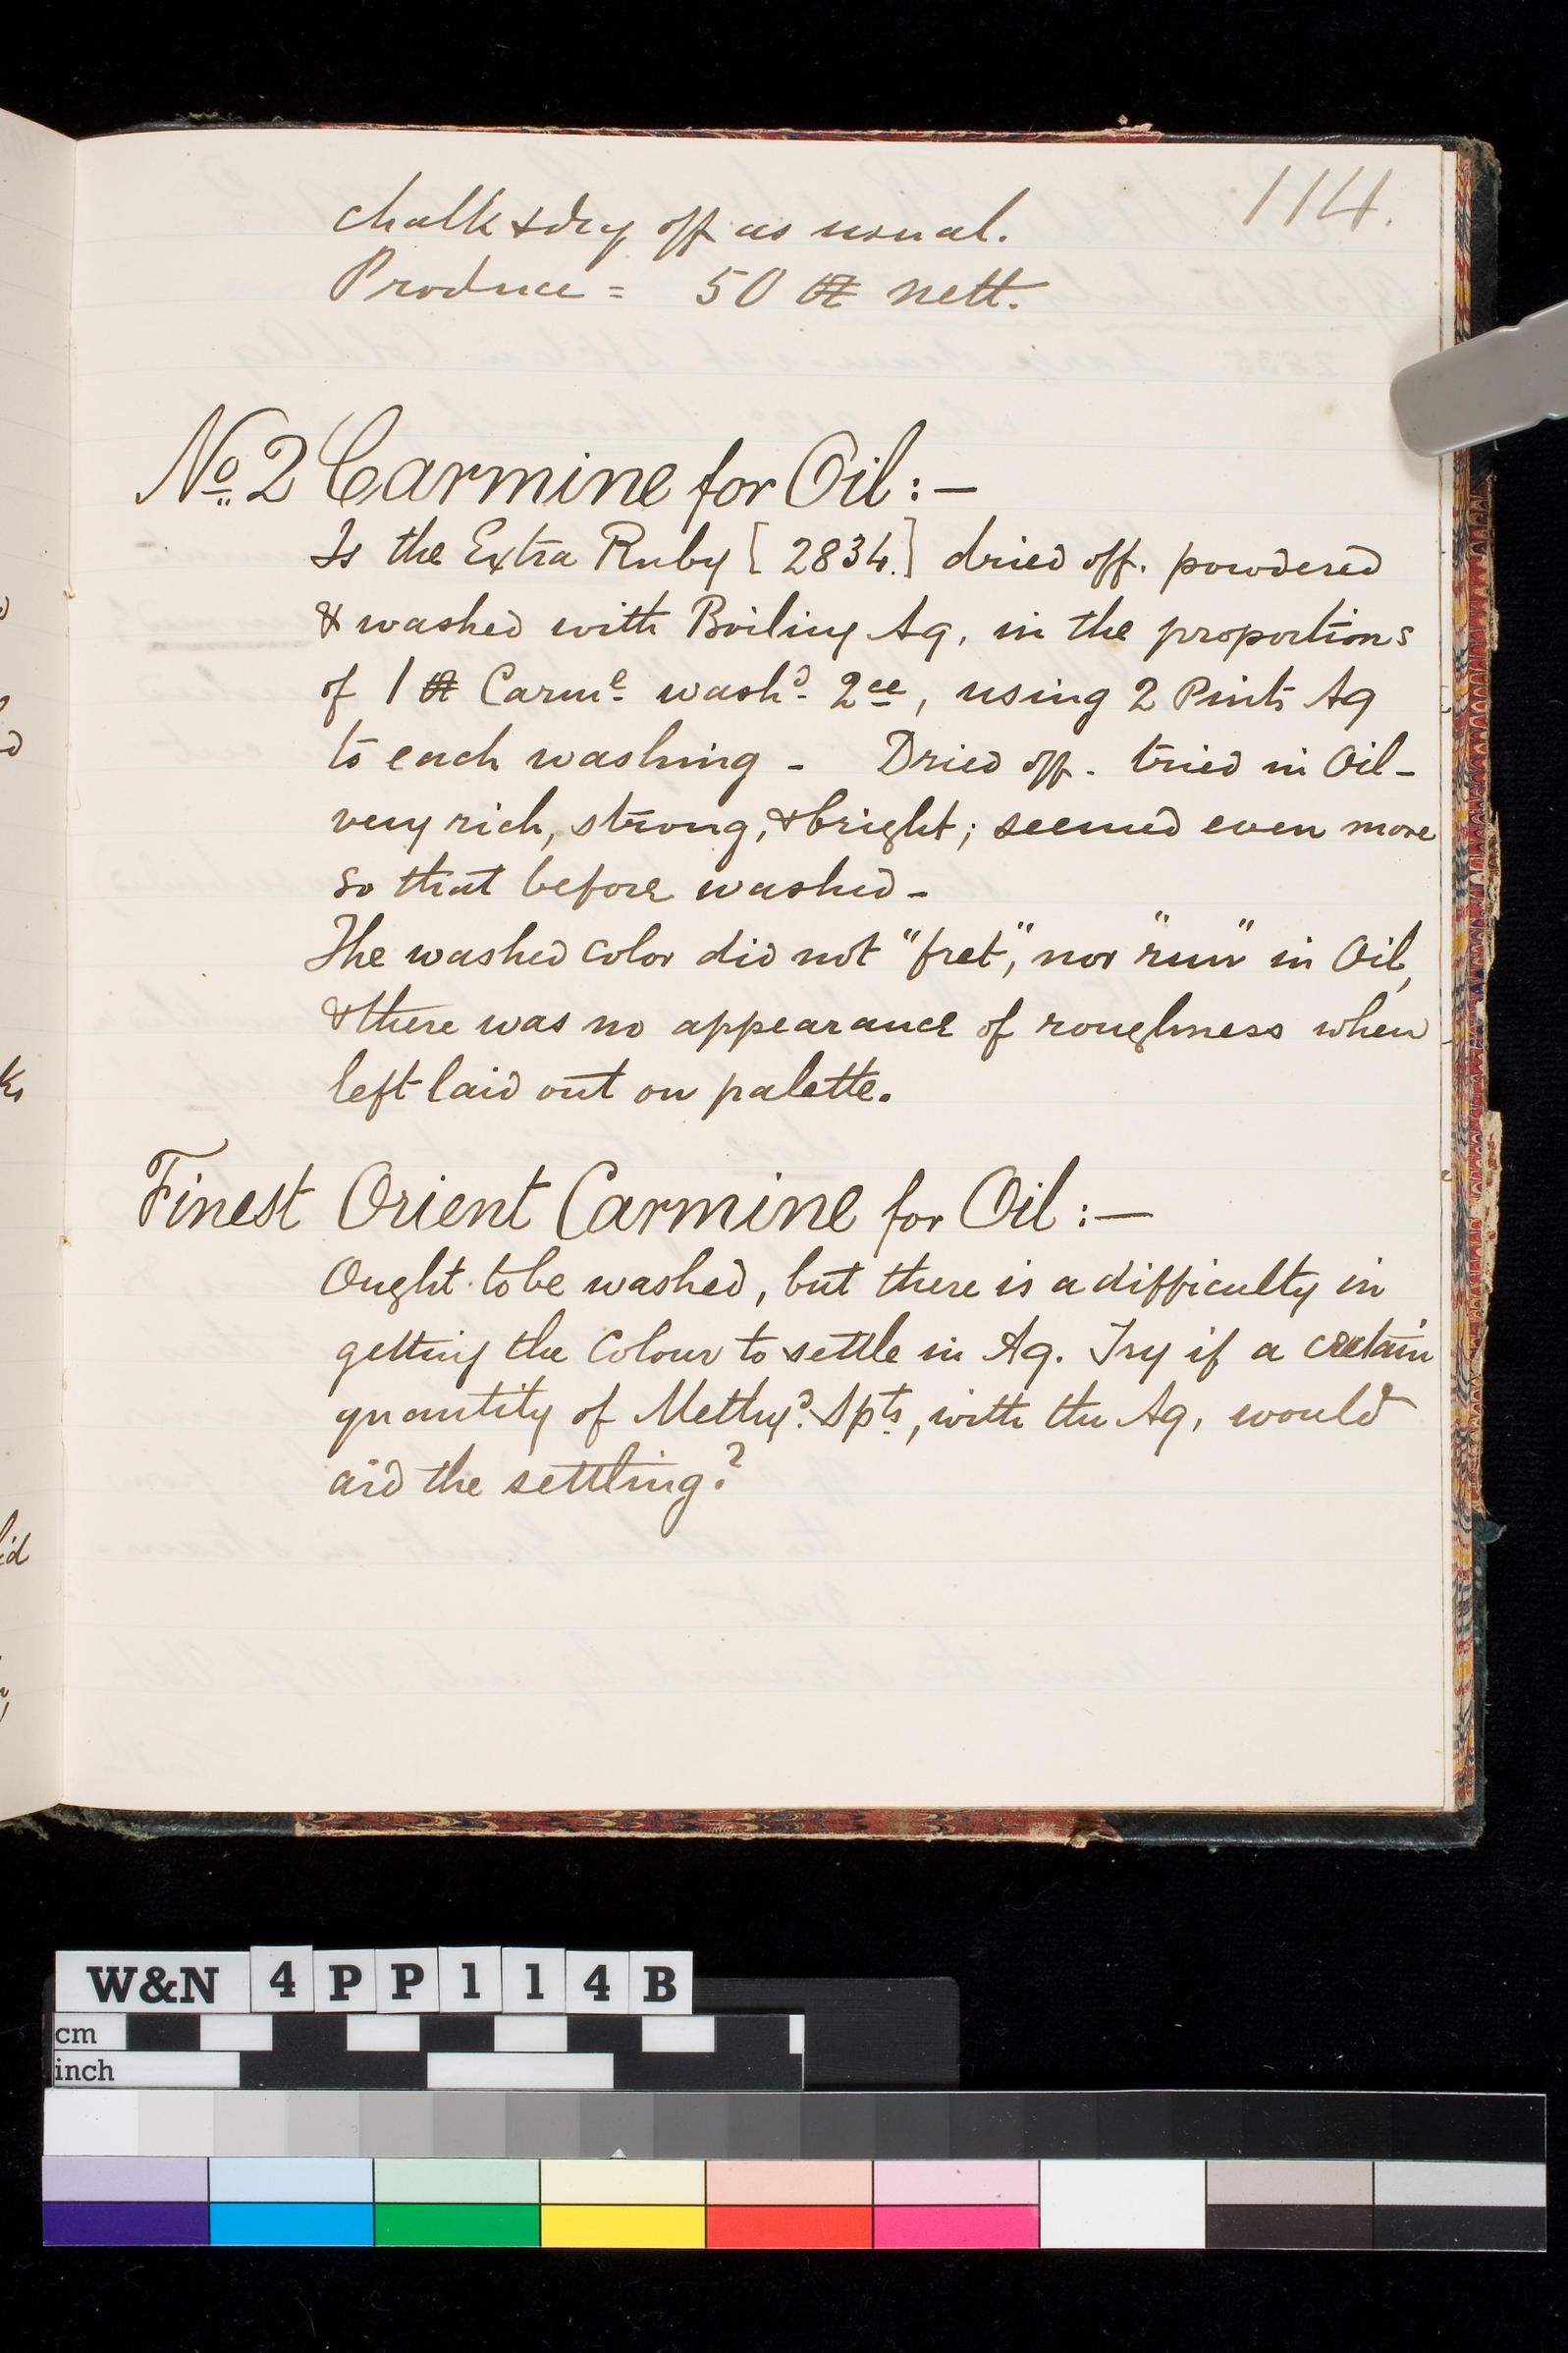 114.
chalk & dry off as usual.
Produce = 50 ℔ nett.
No. 2 Carmine for Oil :—
Is the Extra Ruby [2834.] dried off. powdered
& washed with Boiling Aq, in the proportions
of 1 ℔ Carmᵉ washᵈ 2ᶜᵉ, using 2 Pints Aq
to each washing - Dried off. tried in Oil -
very rich, strong, & bright; seemed even more
so that before washed -
The washed color did not "fret", nor "run" in Oil,
& there was no appearance of roughness when
left laid out on palette.
Finest Orient Carmine for Oil :—
Ought to be washed, but there is a difficulty in
getting the Colour to settle in Aq. Try if a certain
quantity of Methyᵈ. Spᵗˢ, with the Aq, would
aid the settling?
W&N 4PP114B
cm
inch